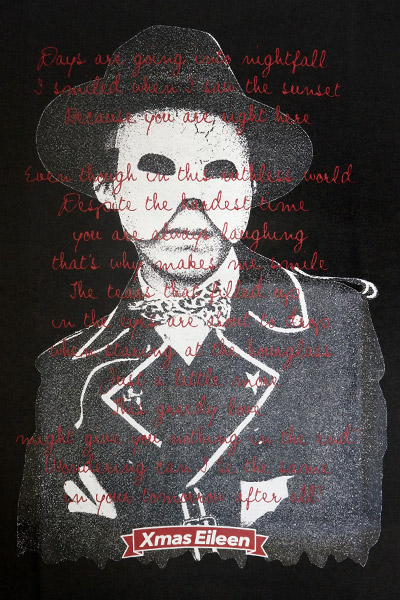 Days are going into nightfall
I smiled when I saw the sunset
Because you are right here
Even though in this ruthless world
Despite the hardest time
you are always laughing
that's why makes me smile
The tears that filled up
in the eyes are about to drop
when staring at the hourglass
Just a little more
this greedy
might give you nothing in the end
Wondering can I be the
in your tomorrow after all
Xmas Eileen